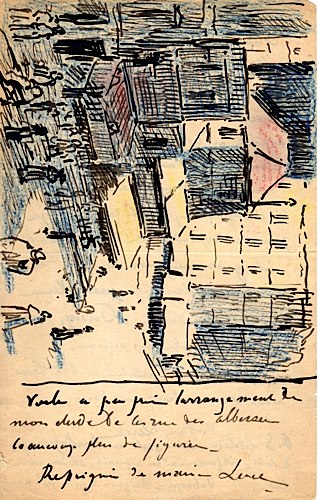 Voila a peu près l'arrangement de
mon etude de la rue des abbesses
beaucoup plus de figures
poignée de main Luce